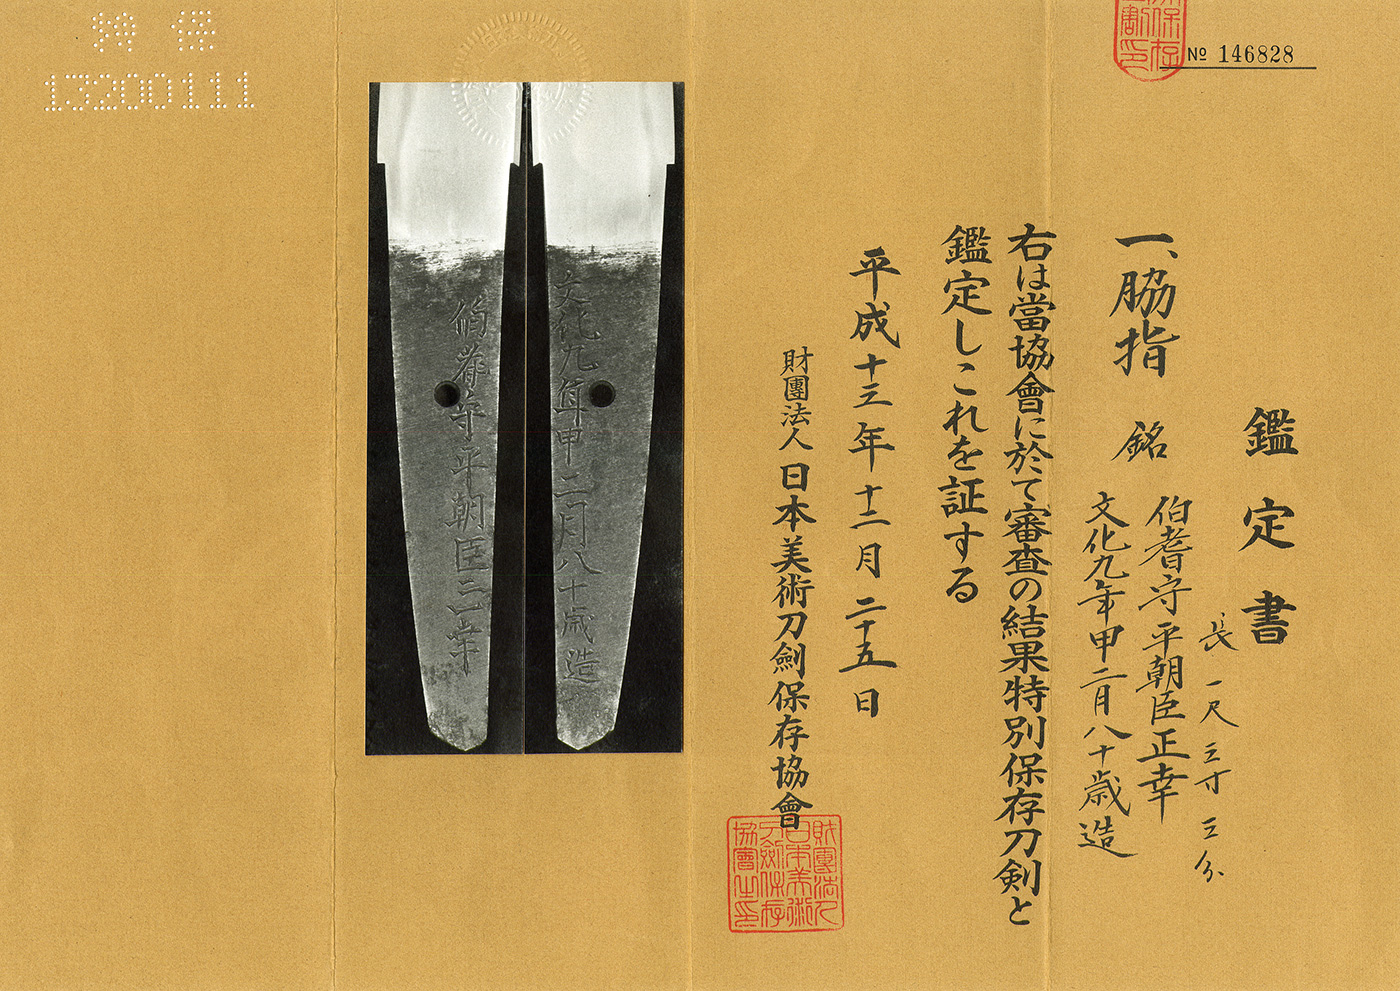 鑑定書
一、脇指 銘 伯耆守平朝臣正幸
文化九年申二月八十歳造
長 一尺三寸三分
右は當協會に於て審査の結果特別保存刀剣と
鑑定しこれを証する
平成十三年十二月二十五日
財團法人日本美術刀劍保存協會
№ 146828
特 保
13200111
伯耆守平朝臣正幸
文化九年申二月八十歳造
財團法人日本美術刀劍保存協會之印